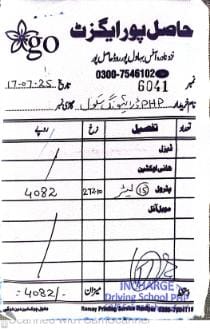 حاصل پور ایگزٹ
go
نزد ماورہ آفس بہاولپور روڈ حاصل پور
0300-7546102
نمبر 6041 تاریخ 17-07-25
نام خریدار PHP ڈرائیونگ سکول گاڑی نمبر
تعداد تفصیل نرخ روپے
ڈیزل
ہائی اوکٹین
پٹرول 15 لیٹر 272.10 4082
موبل آئل
INCHARGE
Driving School PHP
دستخط میزان 4082/-